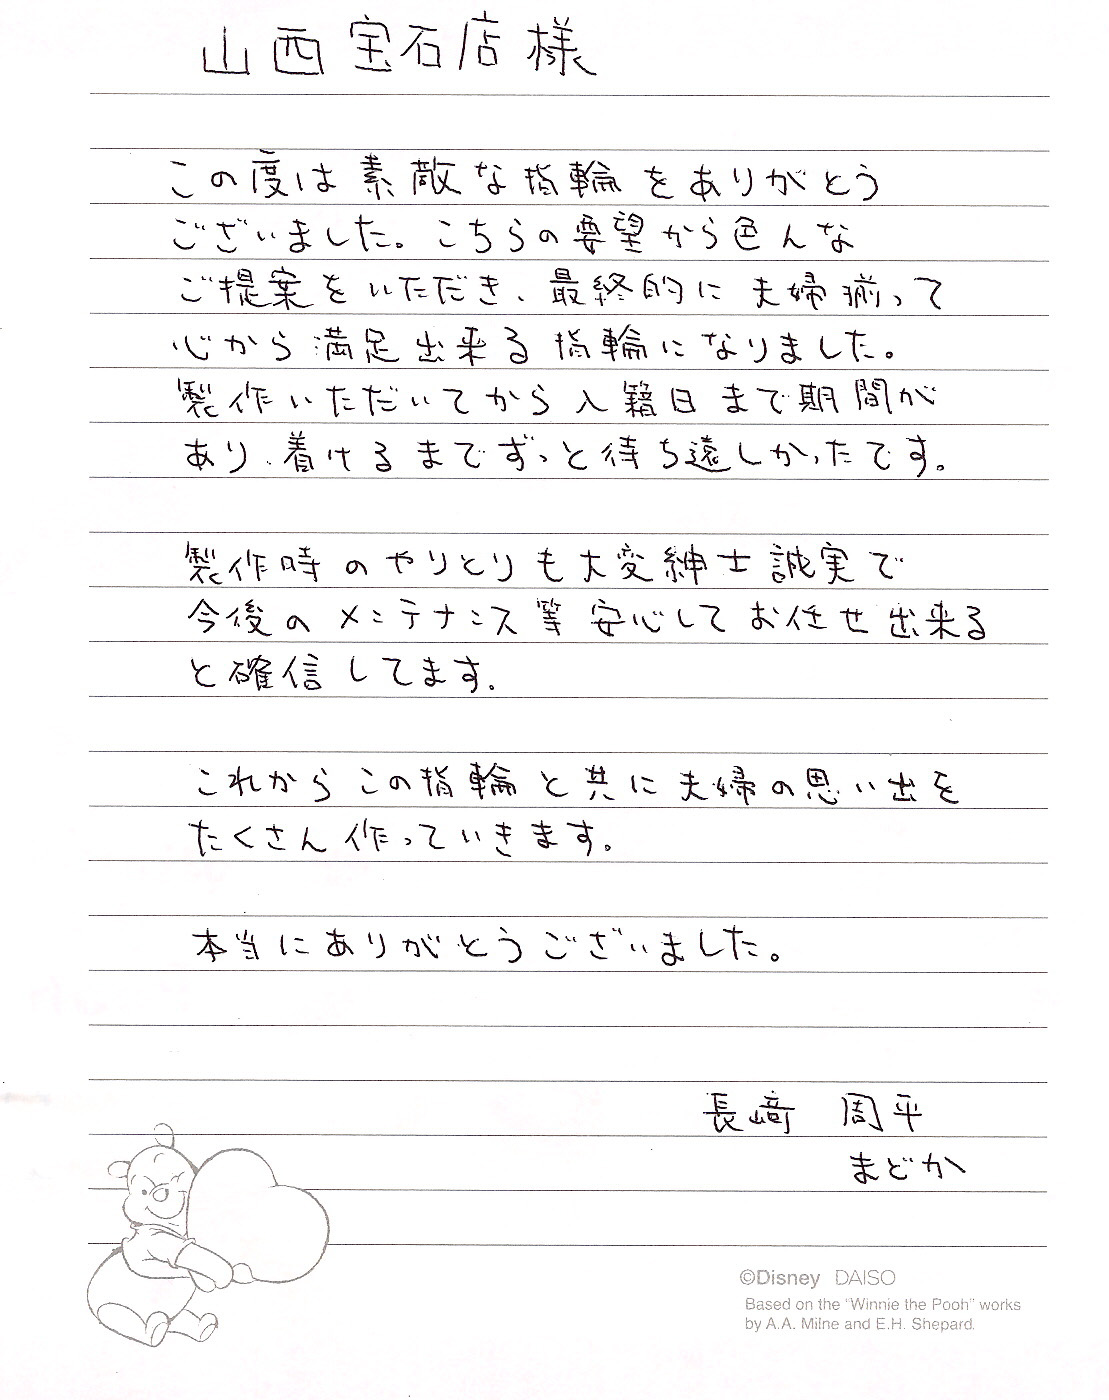 山西宝石店様
この度は素敵な指輪をありがとう
ございました。こちらの要望から色んな
ご提案をいただき、最終的に夫婦揃って
心から満足出来る指輪になりました。
製作いただいてから入籍日まで期間が
あり、着けるまでずっと待ち遠しかったです。
製作時のやりとりも大変紳士誠実で
今後のメンテナンス等安心してお任せ出来る
と確信してます。
これからこの指輪と共に夫婦の思い出を
たくさん作っていきます。
本当にありがとうございました。
長﨑 周平
まどか
©Disney DAISO
Based on the "Winnie the Pooh" works
by A.A. Milne and E.H. Shepard.